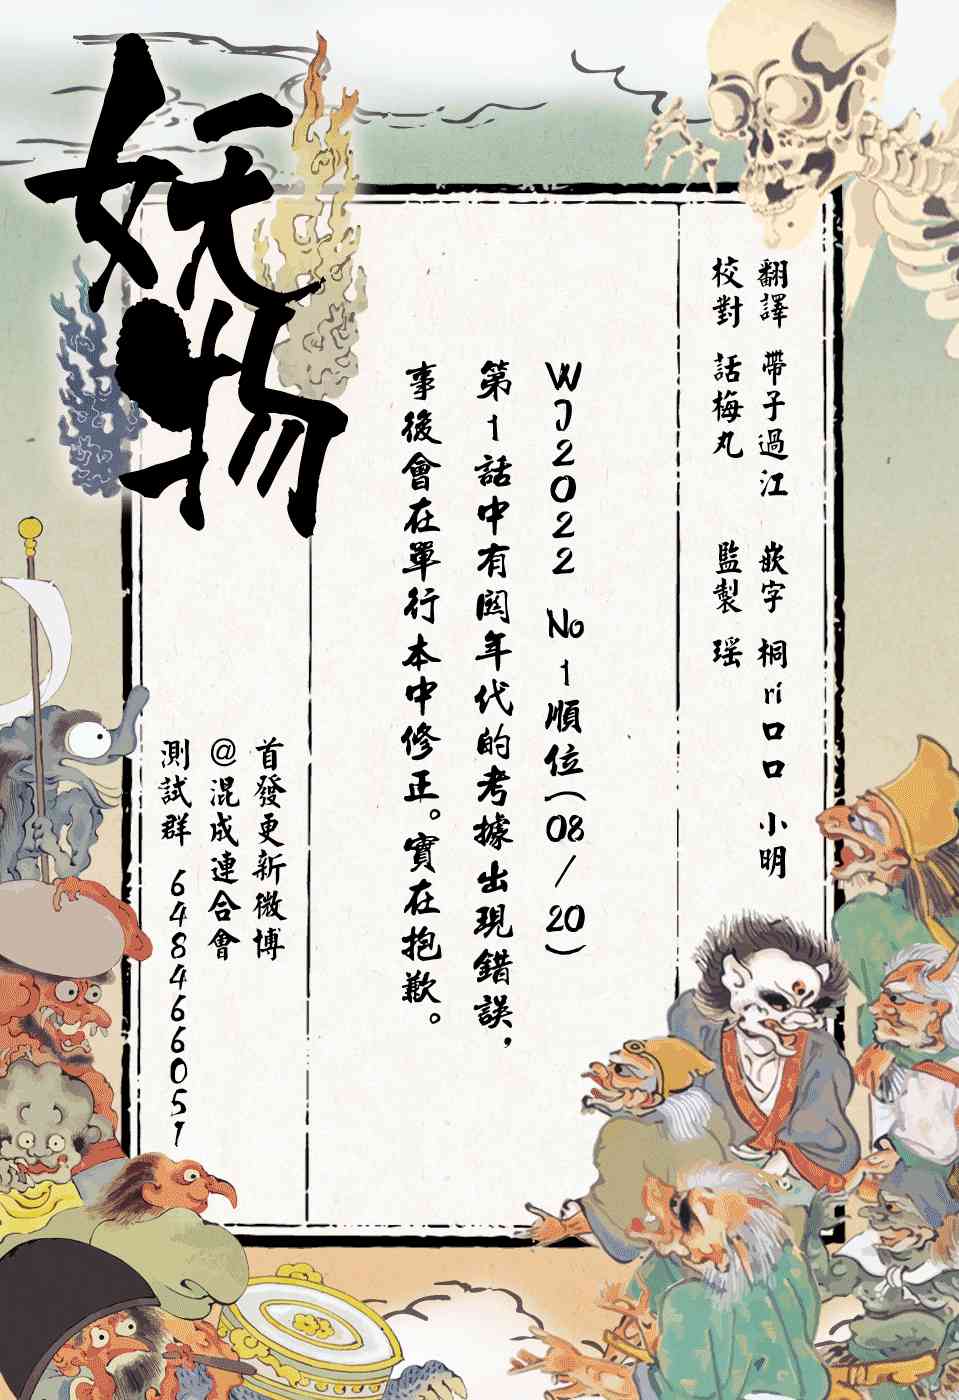 翻譯 帶子過江 嵌字 桐ri口口 小明
校對 話梅丸 監製 瑶
WJ2022 No1順位(08/20)
第1話中有関年代的考據出現錯誤,
事後會在單行本中修正。實在抱歉。
妖物
首發更新微博
@混成連合會
測試群 648466051